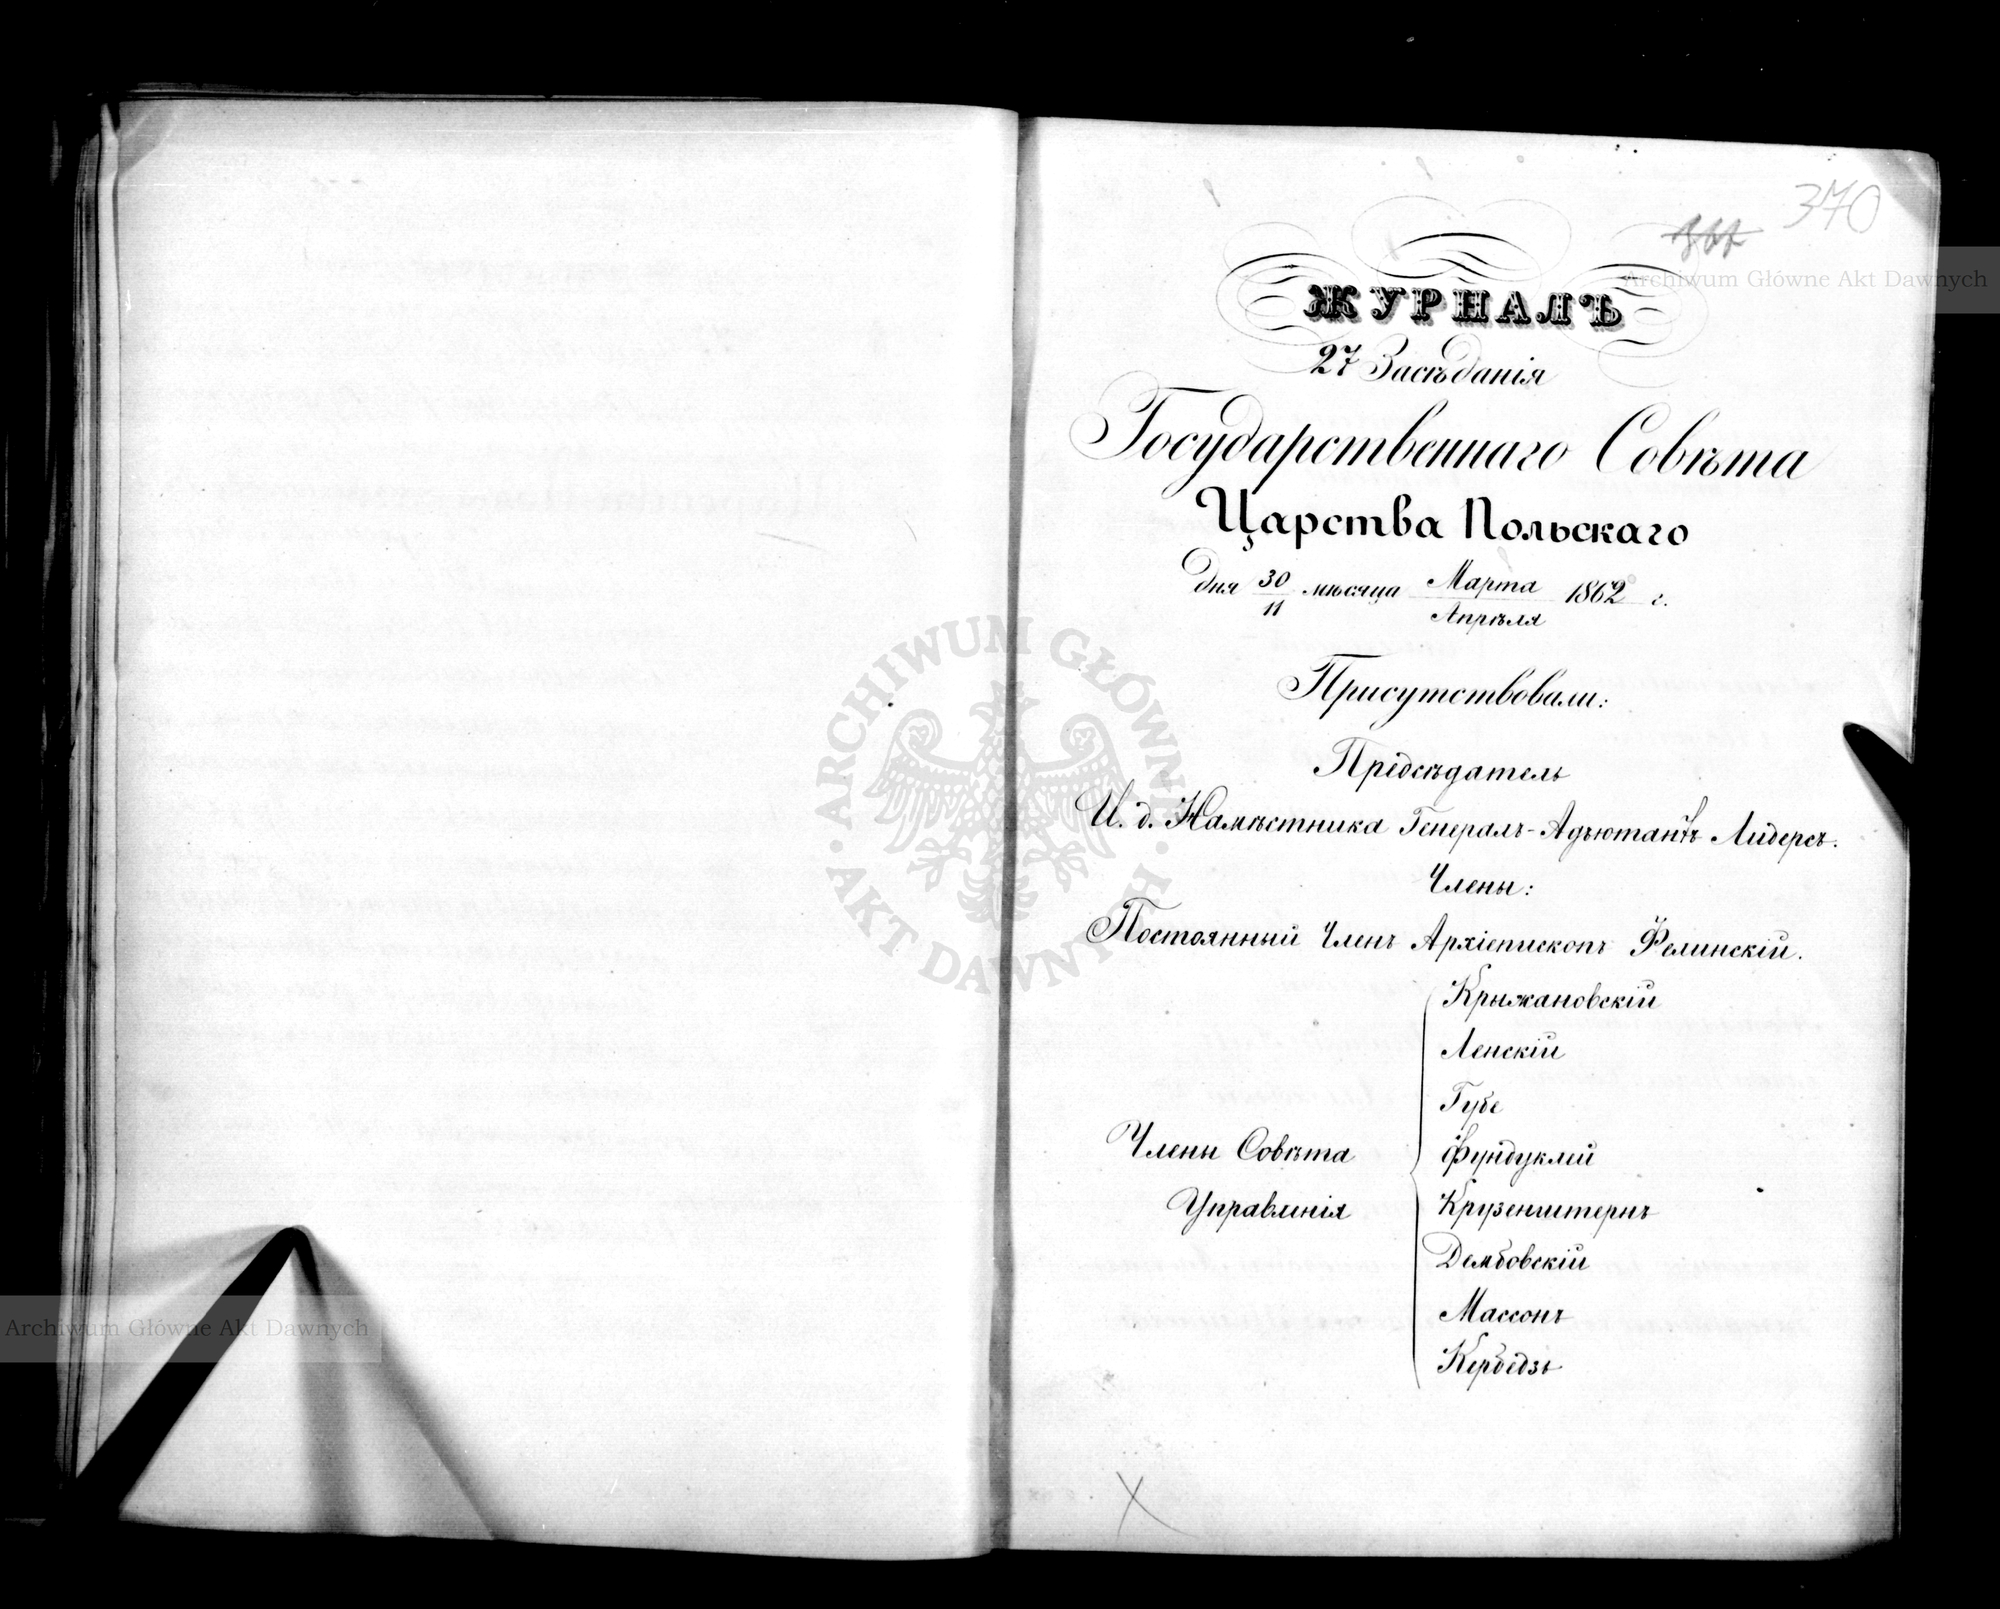 370
Archiwum Główne Akt Dawnych
ЖУРНАЛЪ
27 Засѣданія
Государственнаго Совѣта
Царства Польскаго
дня 30/11 мѣсяца Марта/Апрѣля 1862 г.
Присутствовали:
Предсѣдатель
И. д. Намѣстника Генералъ-Адъютантъ Лидерсъ.
Члены:
Постоянный Членъ Архіепископъ Фелинскій.
Члены Совѣта
Управленія
Крыжановскій
Ленскій
Губе
Фундуклей
Крузенштернъ
Дембовскій
Массонъ
Кербедзъ
ARCHIWUM GŁÓWNE
AKT DAWNYCH
Archiwum Główne Akt Dawnych